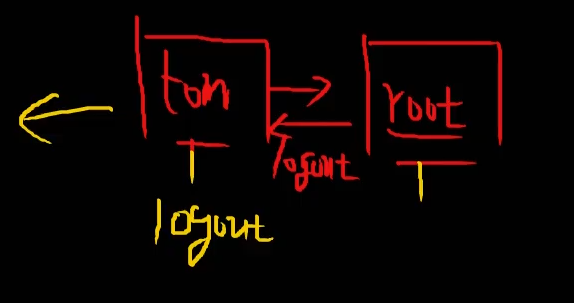 tom
root
logout
logout